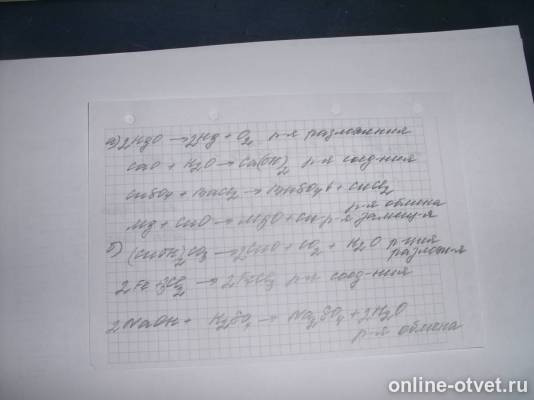 а) 2HgO → 2Hg + O2 р-я разложения
CaO + H2O → Ca(OH)2 р-я соед-ния
CuSO4 + BaCl2 → BaSO4↓ + CuCl2
р-я обмена
Mg + CuO → MgO + Cu р-я замещ-я
б) (CuOH)2CO3 → 2CuO + CO2 + H2O р-ция
разлож-я
2Fe + 3Cl2 → 2FeCl3 р-я соед-ния
2NaOH + H2SO4 → Na2SO4 + 2H2O
р-я обмена
online-otvet.ru